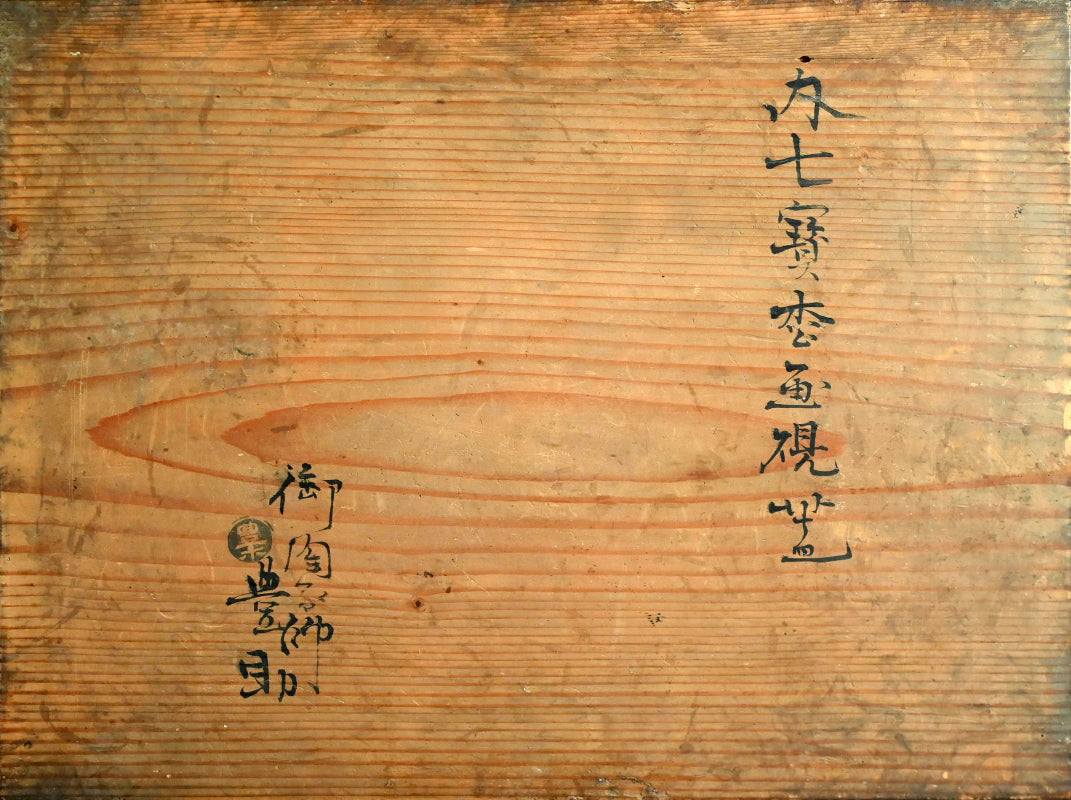 内七寳枩画硯蓋
御陶器師
豊樂
豊助